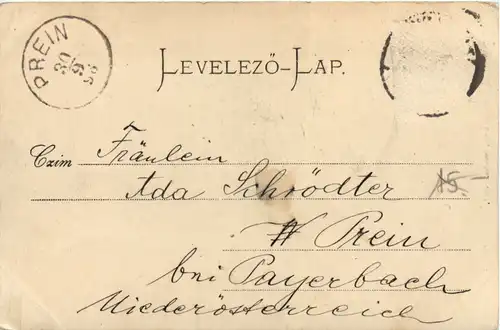 PREIN
30
9
98
LEVELEZŐ-LAP.
Czim Fräulein
Ada Schrödter
15.-
Prein
bei Payerbach
Niederösterreich